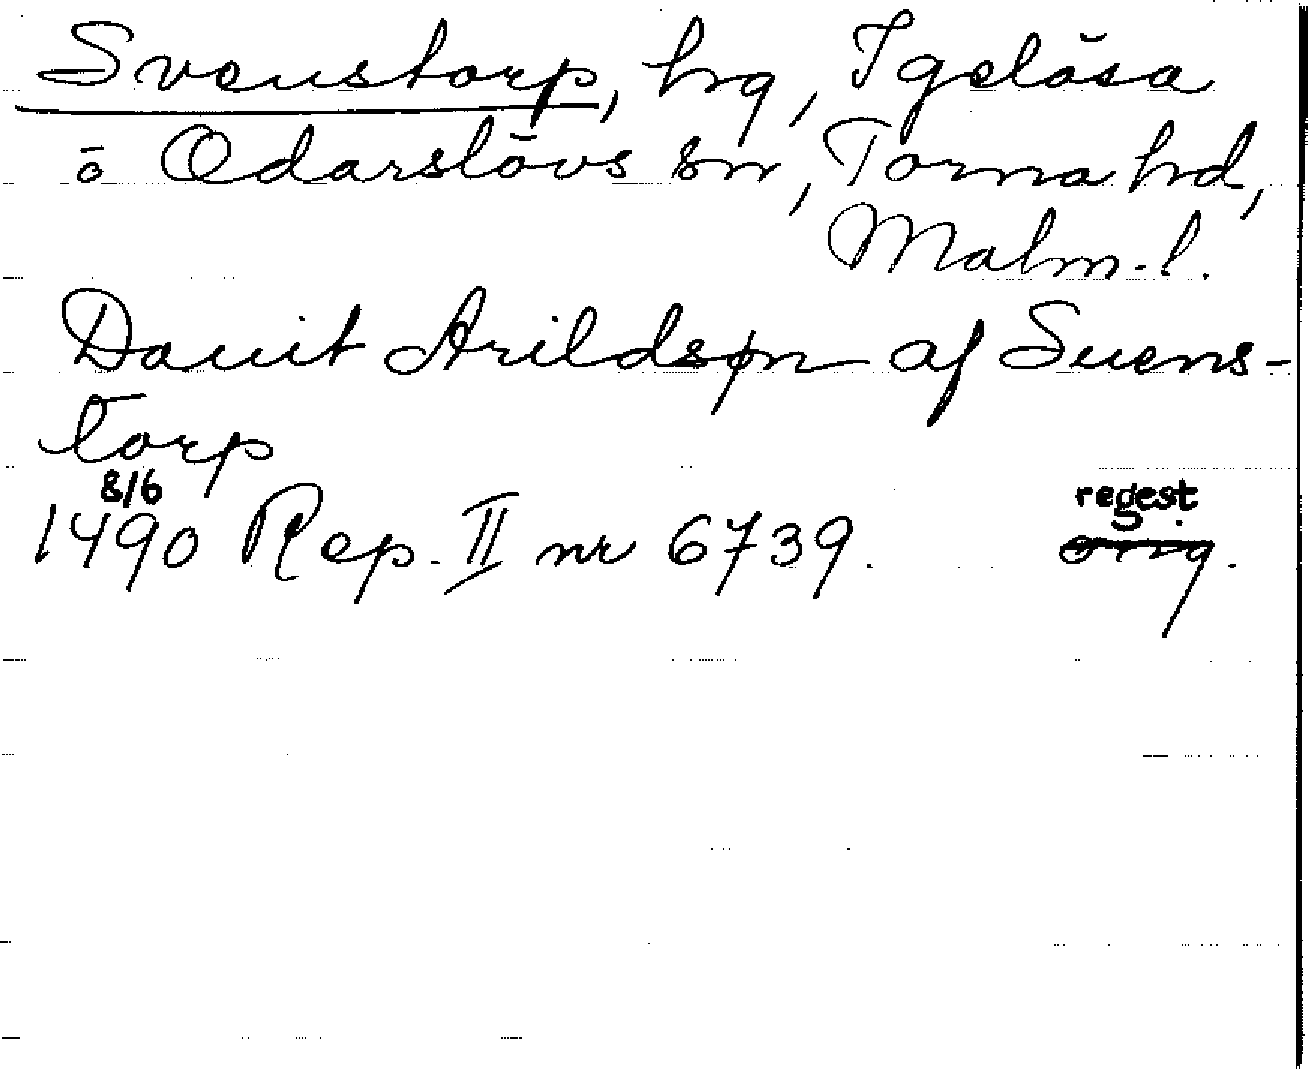 Svenstorp, hg, Igelösa
o Odarslövs sn, Torna hd,
Malm.l.
Dauit Arildsøn af Suens-
torp
8/6
1490 Rep. II nr 6739. regest
orig.